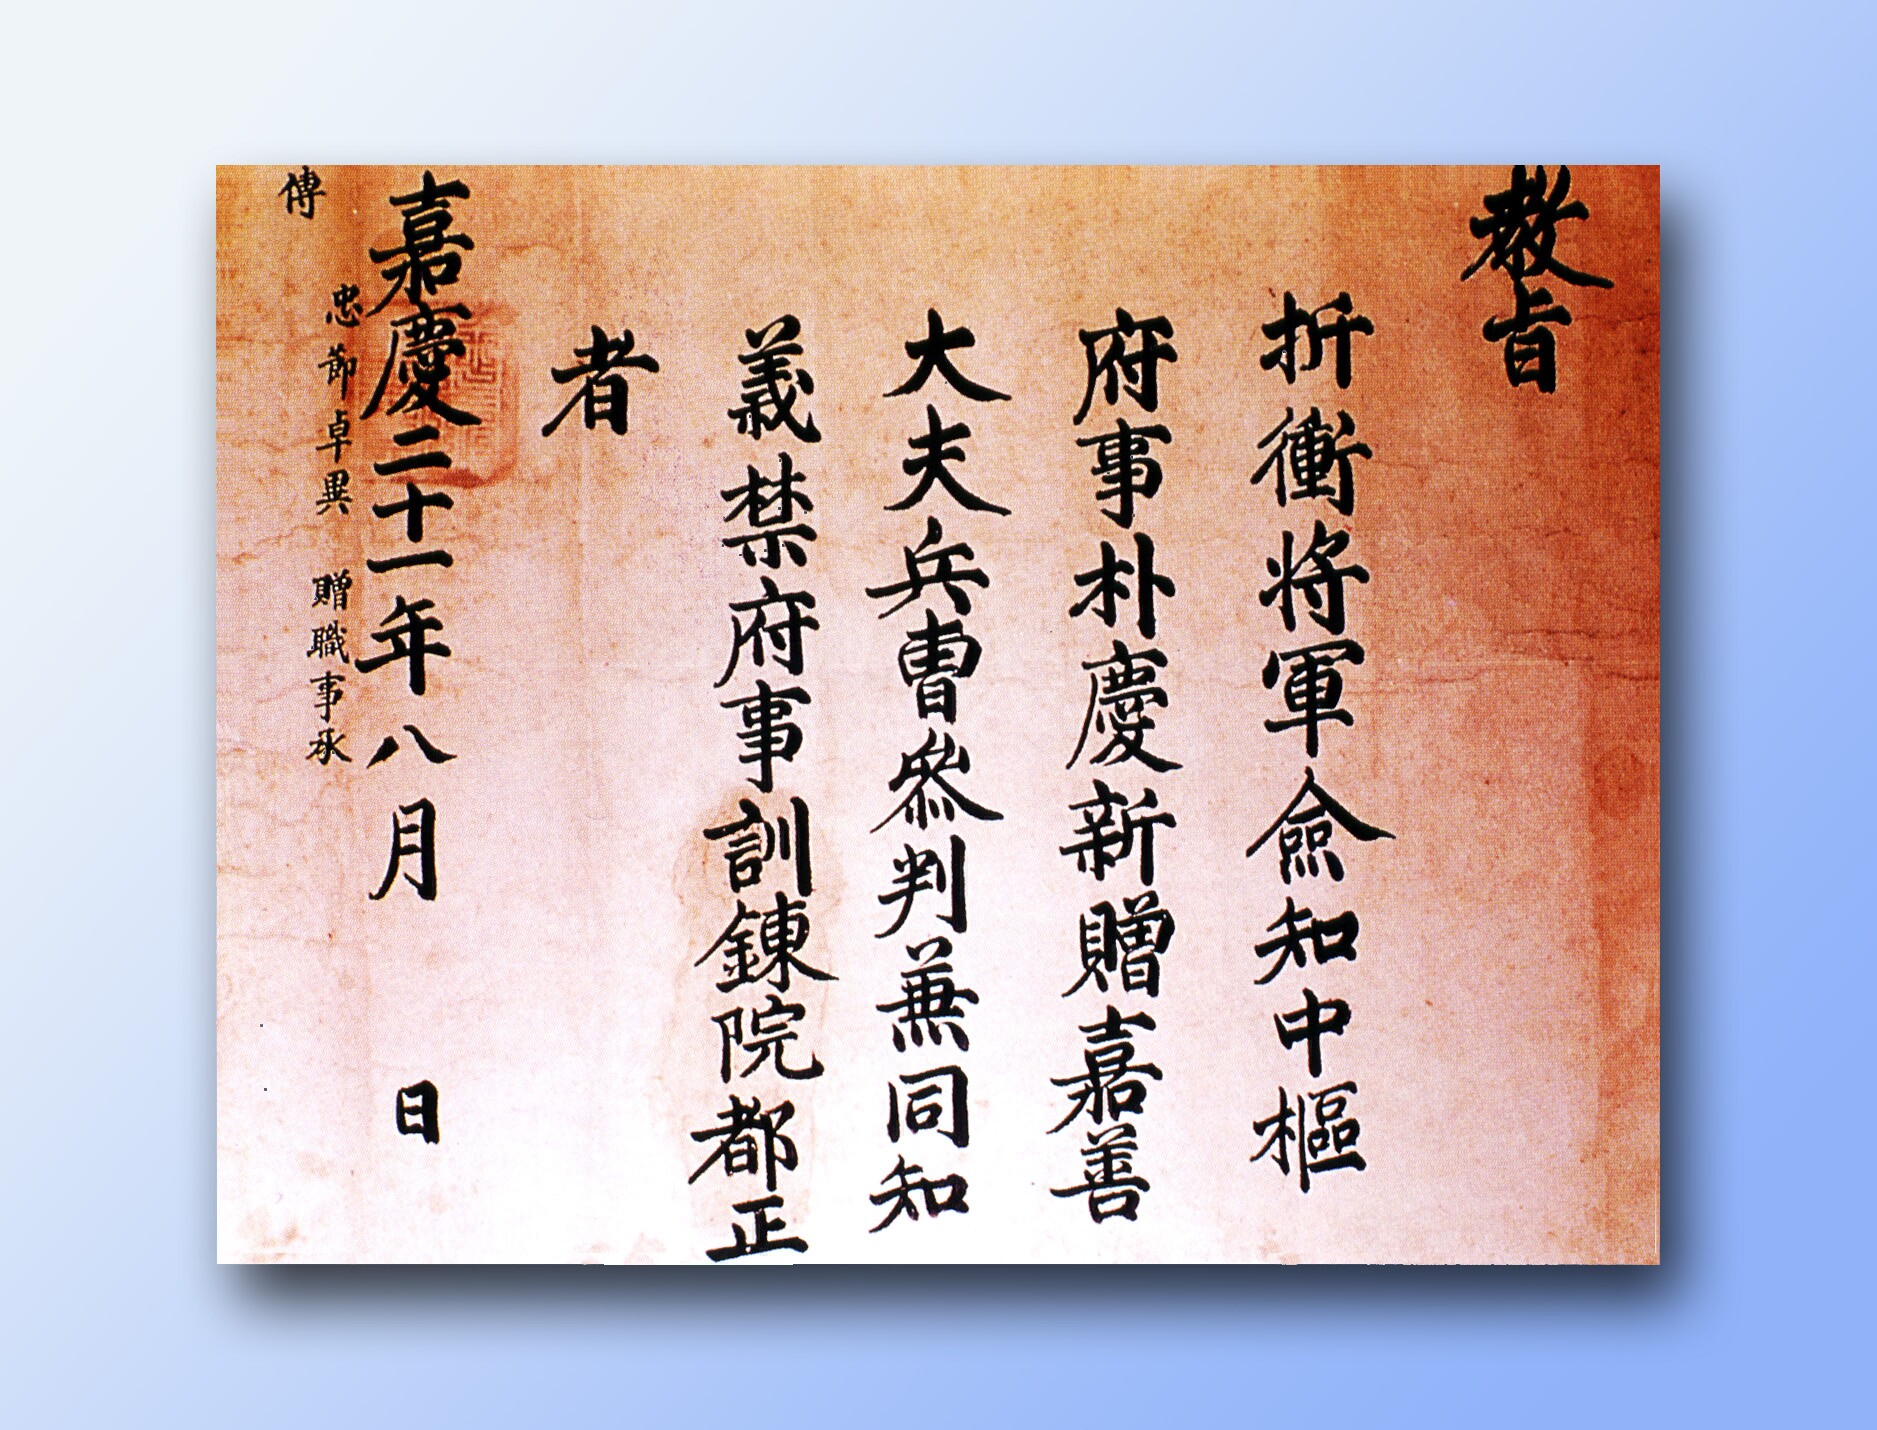 教旨
折衝將軍僉知中樞
府事朴慶新贈嘉善
大夫兵曺參判兼同知
義禁府事訓鍊院都正
者
嘉慶二十一年八月 日
忠節卓異 贈職事承
傳